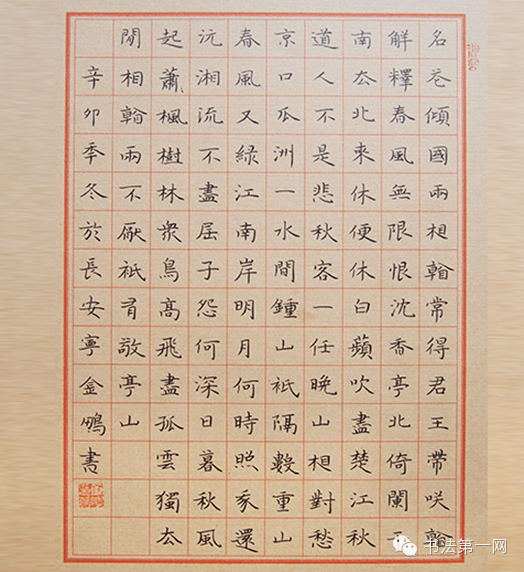 名花傾國兩相看常得君王帶咲看
解釋春風無限恨沈香亭北倚闌干
南去北來休便休白蘋吹盡楚江秋
道人不是悲秋客一任晚山相對愁
京口瓜洲一水間鍾山祇隔數重山
春風又綠江南岸明月何時照我還
沅湘流不盡屈子怨何深日暮秋風
起蕭〻楓樹林衆鳥高飛盡孤雲獨去
閒相看兩不厭祇有敬亭山
辛卯季冬於長安寧金書
书法第一网